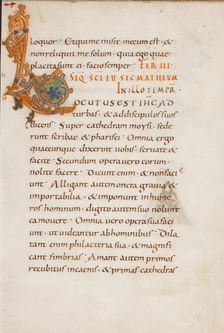 loquor Et qui me misit mecum est &
non reliquit me solum. quia ego quae
placita sunt ei. facio semper FER III
SEQ SCI EU SEC MATHEUM
IN ILLO TEMPR
LOCUTUS EST IHC AD
turbas. & ad discipulos suos
dicens. Super cathedram moysi. sede
runt scribae & pharisei Omnia ergo
quaecumque dixerint uobis. seruate &
facite Secundum opera uero eorum
nolite facere Dicunt enim & non faci
unt. Alligant autem onera grauia &
importabilia. & imponunt inhume
ros hominum. digito autem suo nolunt
ea mouere. Omnia uero opera sua faci
unt. ut uideantur ab hominibus Dilata
ant enim philacteria sua. & magnifi
cant fimbrias Amant autem primos
recubitus in cenis. & primas cathedras